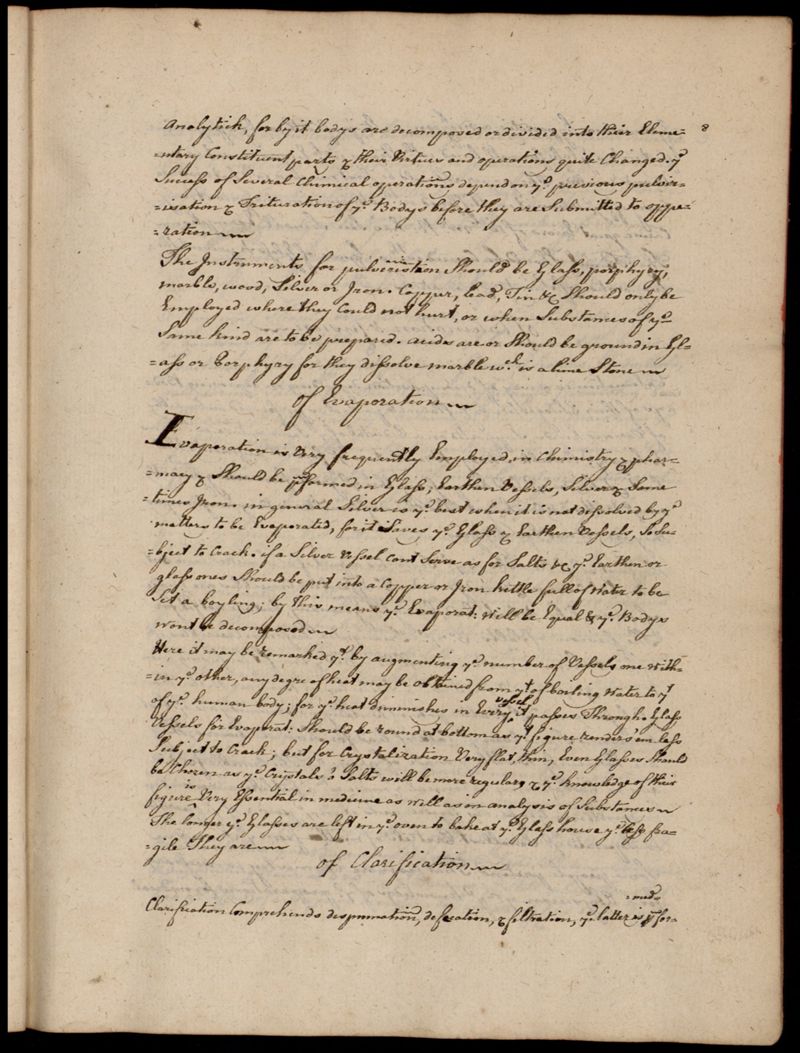 8
Analytick, for by it bodys are decomposed or divided into their Eleme=
=ntary Constituent parts & their Virtues and operations quite Changed. yᵉ
Success of Several Chimical operations depend on yᵉ previous pulver=
=isation & Trituration of yᵉ Bodys before they are Submitted to oppe=
=ration
The Instruments for pulverisation Should be Glass, porphyry,
marble, wood, Silver or Iron. Copper, lead, Tin &c Should only be
Employed where they Could not hurt, or when Substances of yᵉ
Same kind are to be prepared. acids are or Should be ground in Gl=
=ass or Porphyry for they dissolve marble wᶜʰ is a lime Stone
of Evaporation
Evaporation is Very frequently Employed in Chimistry & phar=
=macy & Should be pformed in Glass, Earthen Vessels, Silver & Some
times Iron. in general Silver is yᵉ best when it is not dissolved by yᵉ
matters to be Evaporated, for it Saves yᵉ Glass & Earthen Vessels, So Su=
=bject to Crack. if a Silver Vessel cant Serve as for Salts &c yᵉ Earthen or
glass ones Should be put into a Copper or Iron kettle full of Water to be
Set a boyling; by this means yᵉ Evaporat: will be Equal & yᵉ Bodys
wont be decomposed
Here it may be remarked yᵗ by augmenting yᵉ number of Vessels one with=
=in yᵉ other, any degre of heat may be obtained from yᵗ of boiling Water to yᵗ
of yᵉ human body; for yᵉ heat diminishes in Every vessel it passes Through. Glass
Vessels for Evaporat: Should be round at bottom as yᵗ figure renders em less
Subject to Crack; but for Crystalization Very flat, thin, Even Glasses Should
be Chosen as yᵉ Crystals & Salts will be more regular & yᵉ knowledge of their
figure is Very Essential in medicine as well as in analysis of Substances
The longer yᵉ Glasses are left in yᵉ oven to bake at yᵉ Glass house yᵉ less fra=
=gile They are
of Clarification
Clarification Comprehends despumation, defecation, & filtration, yᵉ latter is pfor=
=med